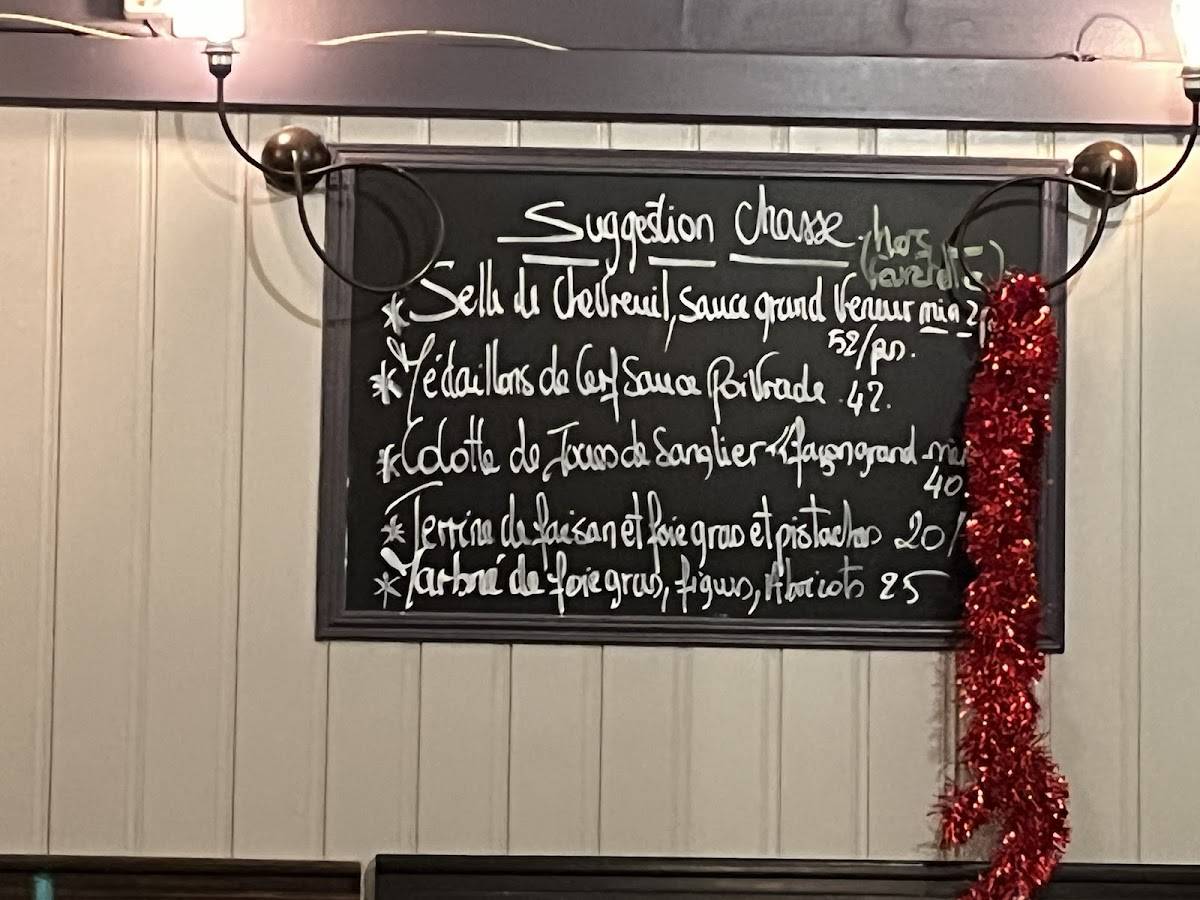 Suggestion Chasse (hors
* Selle de Chevreuil, Sauce grand Veneur min 2
52/prs.
* Médaillons de Cerf Sauce Poivrade. 42.
* Colotte de Joues de Sanglier façon grand
40.
* Terrine de faisan et foie gras et pistaches 20/
* Marbré de foie gras, figues, Abricots 25